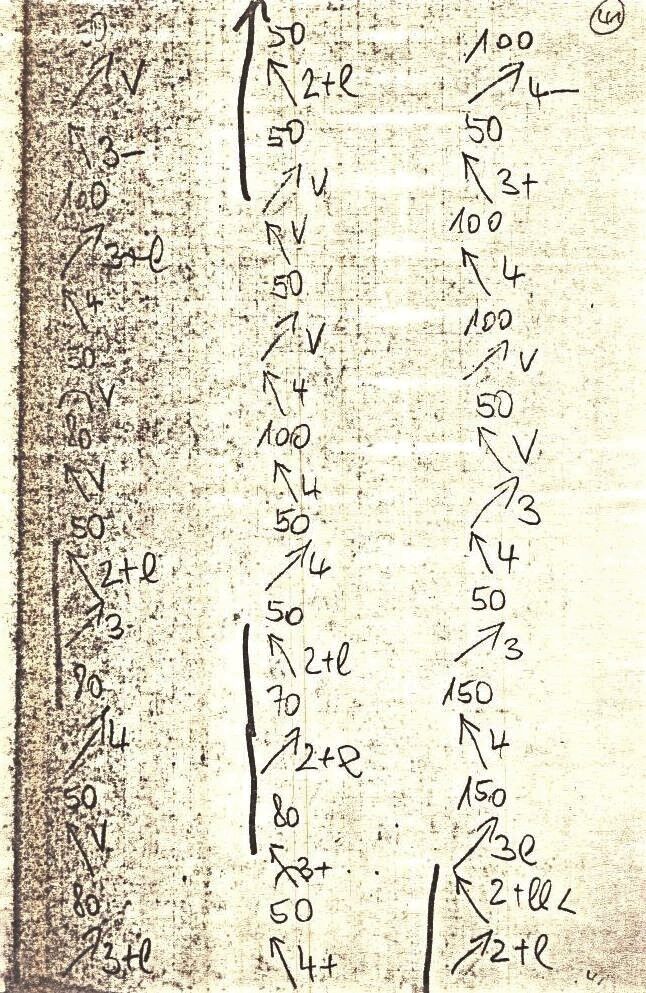 ↗ V
↖ 3-
100
↗ 3+l
↖ 4
50
V
80
↖ V
50
↖ 2+l
↗ 3-
↗ 4
50
↖ V
80
↗ 3+l
50
↖ 2+l
50
↗ V
↖ V
50
↗ V
↖ 4
100
↖ 4
50
↗ 4
50
↖ 2+l
70
↗ 2+l
80
↖ 3+
50
↖ 4+
100
↗ 4-
50
↖ 3+
100
↖ 4
100
↗ V
50
↖ V
↗ 3
↖ 4
50
↗ 3
150
↖ 4
150
↗ 3l
↖ 2+ll<
↗ 2+l